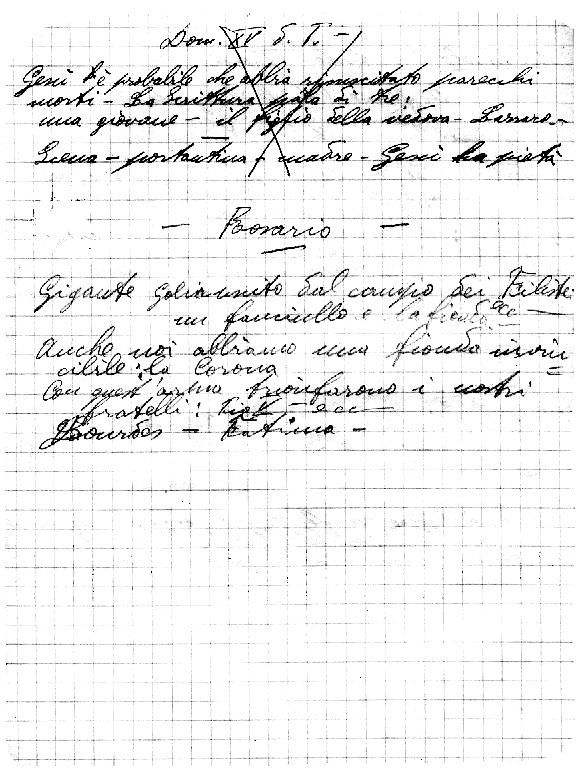 Dom. XV d. T. -
Gesù è probabile che abbia resuscitato parecchi
morti - La Scrittura parla di tre:
una giovane - il figlio della vedova - Lazzaro -
Scena - portantina - madre - Gesù ha pietà
- Rosario -
Gigante Golia uscito dal campo dei Filistei
un fanciullo e la fionda ecc -
Anche noi abbiamo una fionda invin=
cibile: la Corona
Con quest'arma trionfarono i nostri
fratelli: ecc -
Lourdes - Fatima -